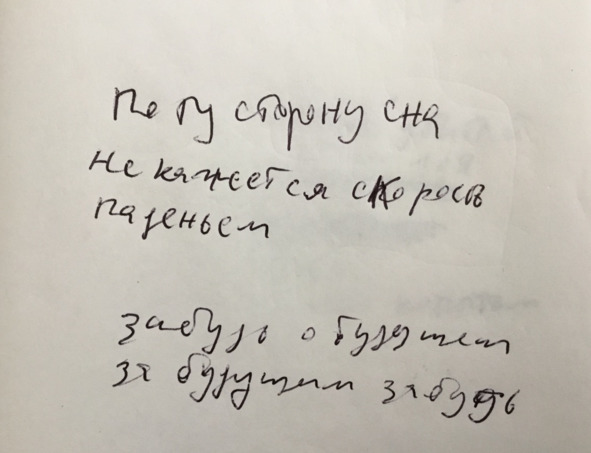 По ту сторону сна
не кажется скорость
паденьем
забудь о будущем
за будущим забудь